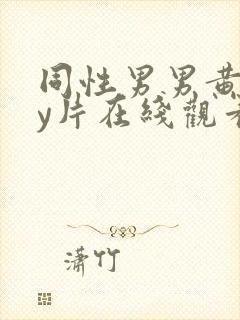 同性男男黄
y片在綫觀看
潇竹